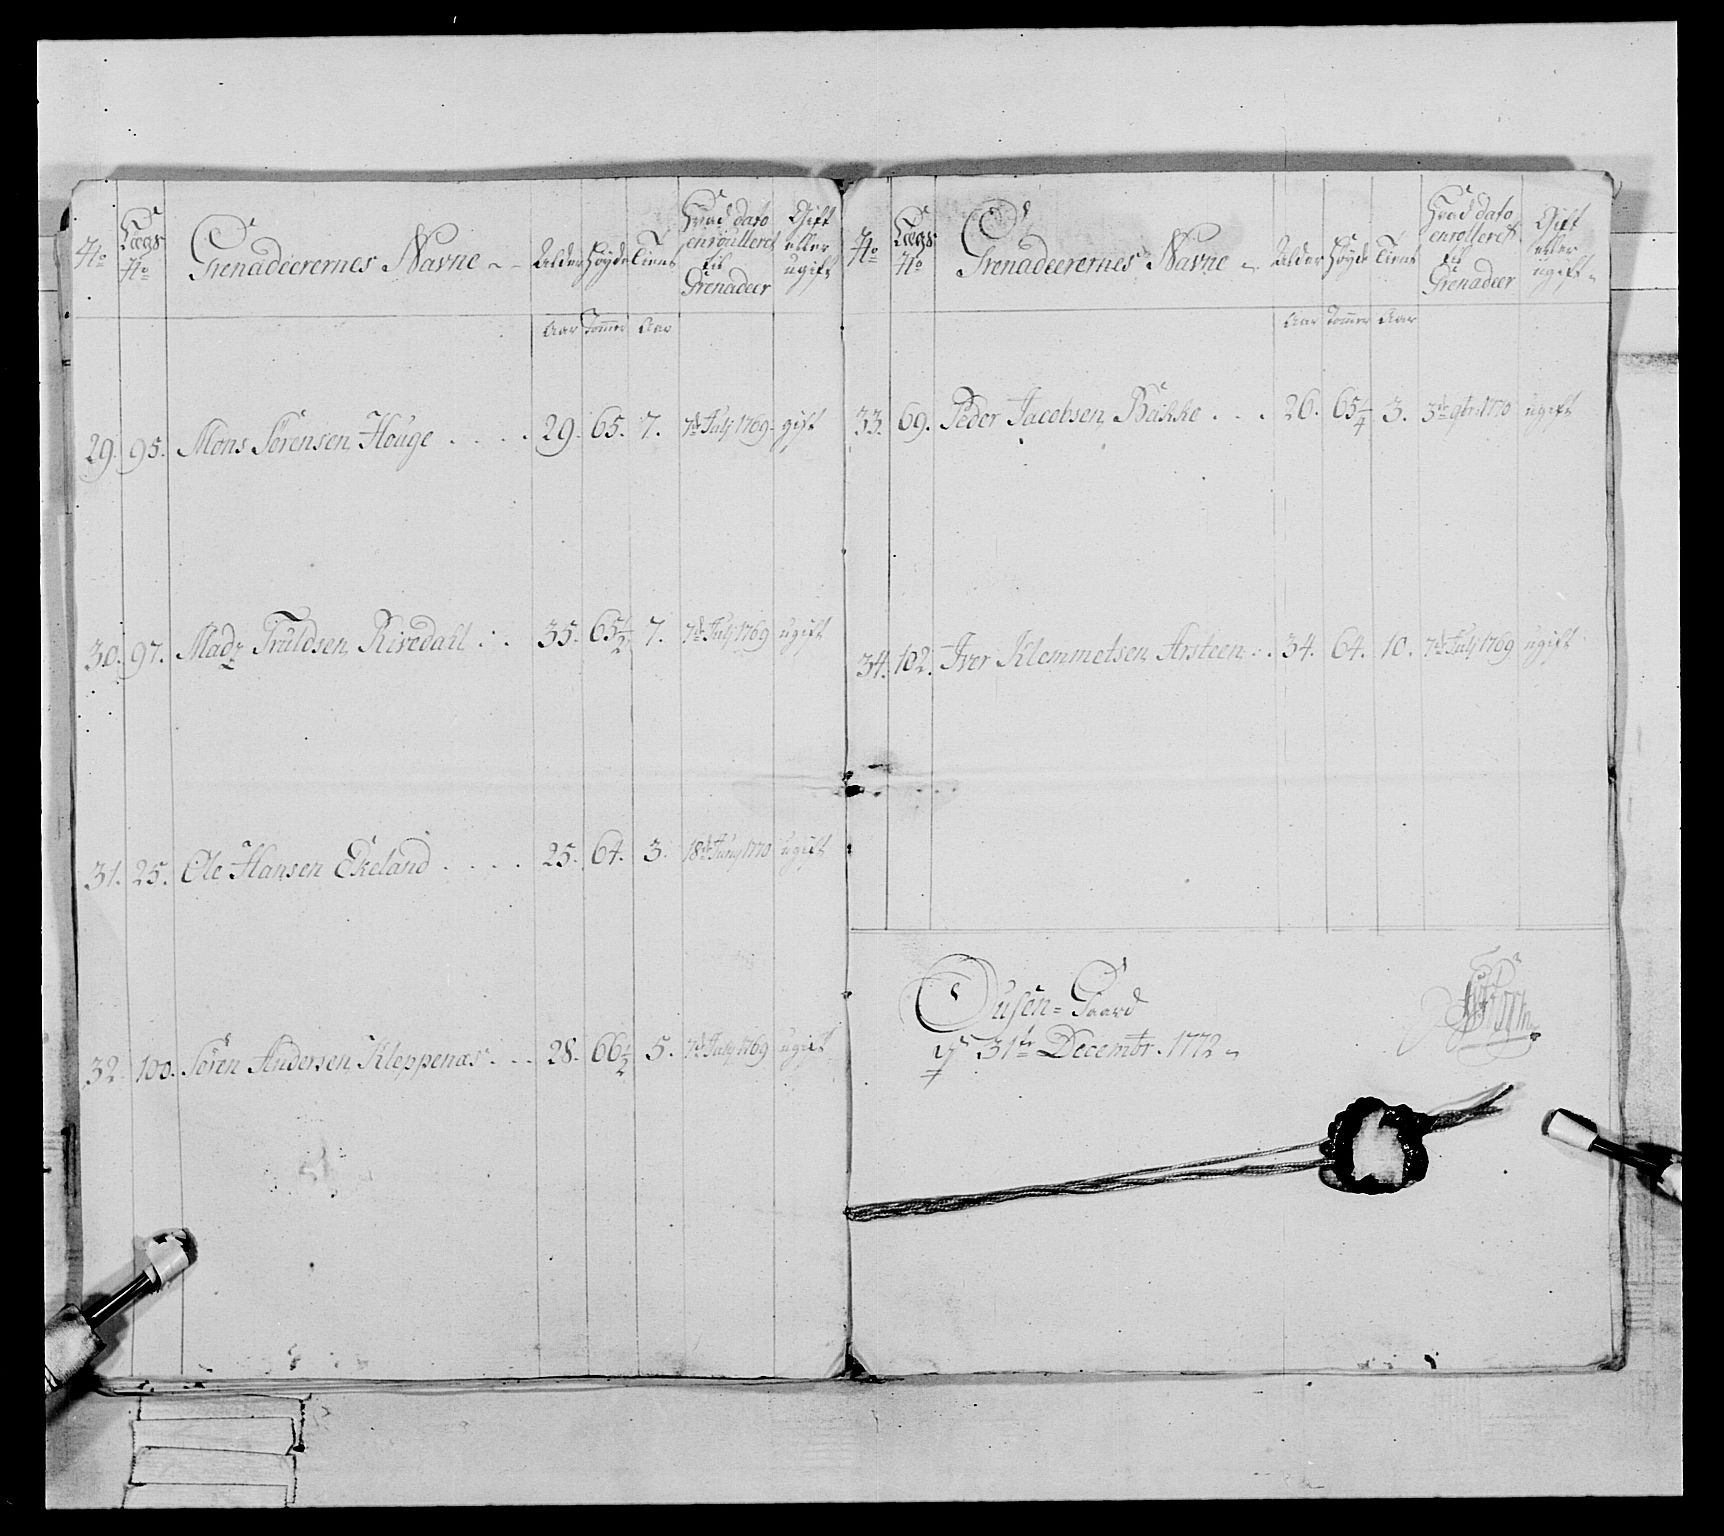 No Lægs No Grenadeerernes Navne Alder Höyde Tient Hvad dato enroulleret til Grenadeer Gift eller ugift
Aar Tommer Aar
29. 95. Mons Sörensen Houge . . . . 29. 65. 7. 7de July 1769. gift
30. 97. Madz Truldsen Risedahl . . 35. 65 1/2 7. 7de July 1769 ugift
31. 25. Ole Hansen Ekeland . . . . 25. 64. 3. 18de Juny 1770 ugift
32. 100. Sören Andersen Kleppenæs . . . 28. 66 1/2 5. 7de July 1769 ugift
No Lægs No Grenadeerernes Navne Alder Höyde Tient Hvad dato enrolleret til Grenadeer Gift eller ugift
Aar Tommer Aar
33. 69. Peder Jacobsen Bakke . . . 26. 65 1/4 3. 3de 9br: 1770 ugift
34. 102. Iver Klemmetsen Arsteen . . 34. 64. 10. 7de July 1769 ugift
Dusen=Gaard
31te Decembr. 1772